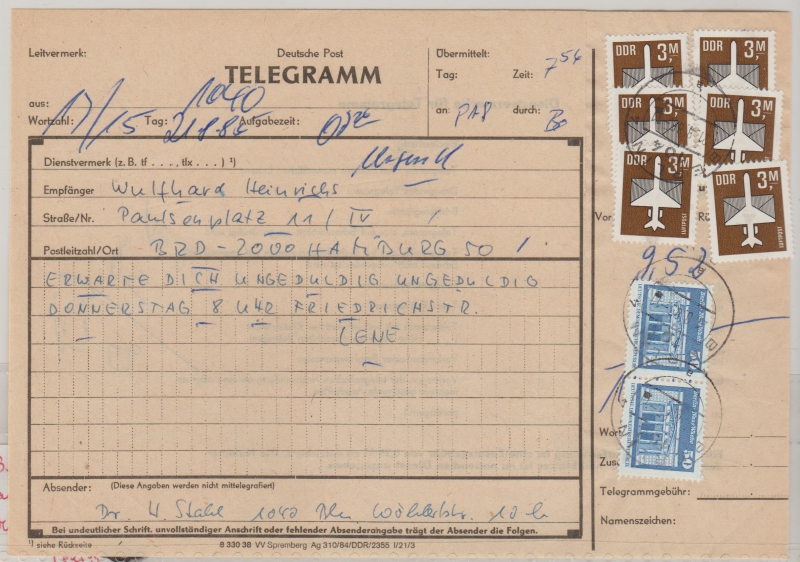 Leitvermerk:
Deutsche Post
TELEGRAMM
Übermittelt:
Tag: Zeit: 7 54
an: PA8 durch: Bo
aus: 1040
Wortzahl: 17/15 Tag: 21.8.86 Aufgabezeit:
Dienstvermerk (z. B. tf . . . , tlx . . . ) ¹)
Empfänger Wulfhard Heinrichs
Straße/Nr. Paulsenplatz 11 / IV
Postleitzahl/Ort BRD - 2000 HAMBURG 50
ERWARTE DICH UNGEDULDIG UNGEDULDIG
DONNERSTAG 8 UHR FRIEDRICHSTR.
LENE
Absender: (Diese Angaben werden nicht mittelegrafiert)
Dr. H. Stahl 1040 Bln. Wöhlertstr. 10 b
Bei undeutlicher Schrift, unvollständiger Anschrift oder fehlender Absenderangabe trägt der Absender die Folgen.
¹) siehe Rückseite 8 330 38 VV Spremberg Ag 310/84/DDR/2355 I/21/3
DDR 3M
DDR 3M
DDR 3M
DDR 3M
DDR 3M
LUFTPOST
DDR 3M
LUFTPOST
Vor
Rü
9,53
50
Wort
Zus
Telegrammgebühr:
Namenszeichen: